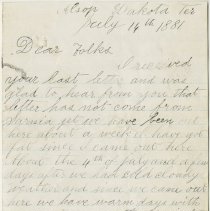 Alsop Dakota Ter
July 14th 1881
Dear Folks
I received
your last letter and was
glad to hear from you that
letter has not come from
Sarnia yet we have been
here about a week I have got
fat since I came out here
about the 4th of july and a few
days after we had cold cloudy
weather and since we came out
here we have warm days with